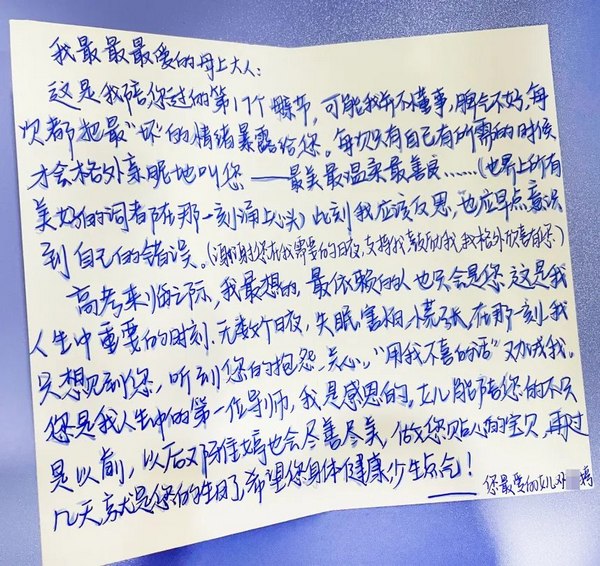 我最最最爱的母上大人:
这是我陪您过的第17个母亲节,可能我并不懂事,脾气不好,每
次都把最"坏"的情绪暴露给您。每次只有自己有所需的时候
才会格外亲昵地叫您——最美最温柔最善良……(世界上所有
美好的词都在那一刻涌上心头)此刻我应该反思,也应早点意识
到自己的错误。(谢谢您在我需要的日夜,支持我鼓励我,我格外欣喜自您)
高考来临之际,我最想的,最依赖的人也只会是您,这是我
人生中重要的时刻.无数个日夜,失眠,害怕,慌张,在那一刻,我
只想见到您,听到您的抱怨,关心,"用我不喜的话"劝诫我.
您是我人生中的第一位导师,我是感恩的.女儿能陪您的不只
是以前,以后邓佳嫣也会尽善尽美,做您贴心的宝贝,再过
几天就是您的生日了,希望您身体健康,少生点气!
——您最爱的女儿邓 嫣